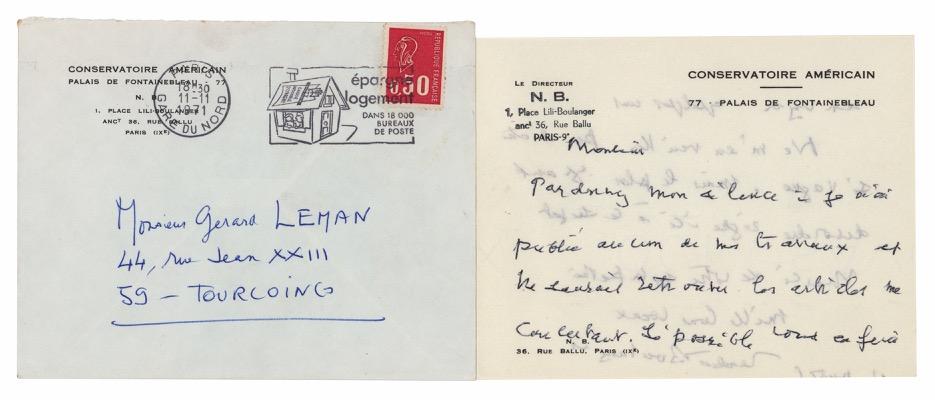 CONSERVATOIRE AMÉRICAIN
PALAIS DE FONTAINEBLEAU 77
N. B.
1, PLACE LILI-BOULANGER
ANCT 36, RUE BALLU
PARIS (IXE)
PARIS
18H30
11-11
1971
GARE DU NORD
épargne
logement
DANS 18 000
BUREAUX
DE POSTE
RÉPUBLIQUE FRANÇAISE
0,50
Monsieur Gerard LEMAN
44, rue Jean XXIII
59 - TOURCOING
LE DIRECTEUR
N. B.
1, Place Lili-Boulanger
anct 36, Rue Ballu
PARIS-9e
CONSERVATOIRE AMÉRICAIN
77 PALAIS DE FONTAINEBLEAU
Monsieur
Pardonnez mon silence - je n'ai
publié aucun de mes travaux et
ne saurais retrouver les articles me
concernant. Si possible vous en ferai
N. B.
36, RUE BALLU, PARIS (IXE)